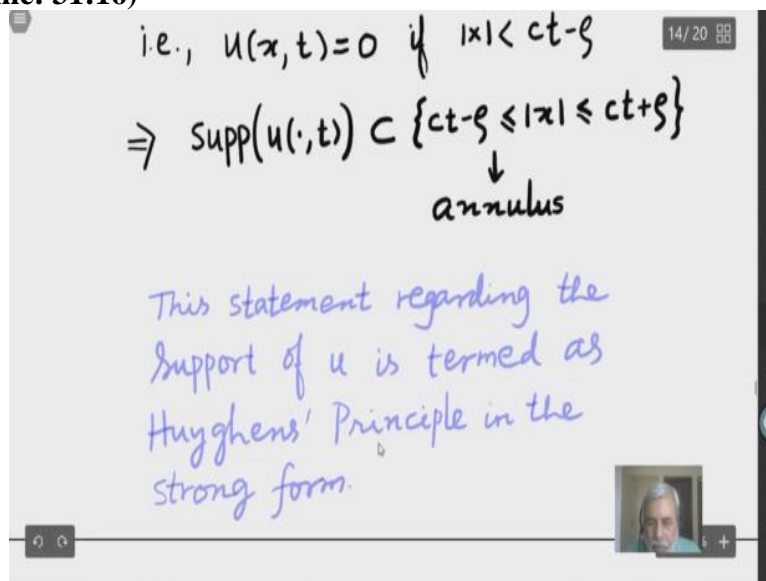 i.e., u(x,t)=0 if |x|< ct-ρ
14/20
⇒ Supp(u(·,t)) ⊂ {ct-ρ ≤|x| ≤ ct+ρ}
↓
annulus
This statement regarding the
Support of u is termed as
Huyghens' Principle in the
strong form.